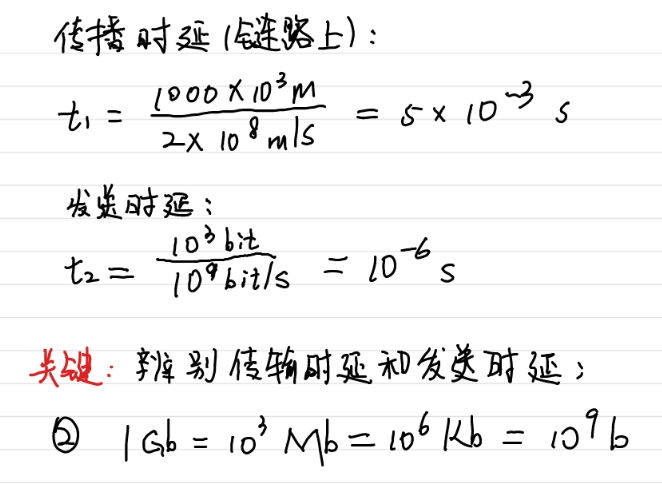 传播时延(链路上):
t₁ = (1000 × 10³ m) / (2 × 10⁸ m/s) = 5 × 10⁻³ s
发送时延:
t₂ = (10³ bit) / (10⁹ bit/s) = 10⁻⁶ s
关键: 辨别传输时延和发送时延;
② 1 Gb = 10³ Mb = 10⁶ Kb = 10⁹ b